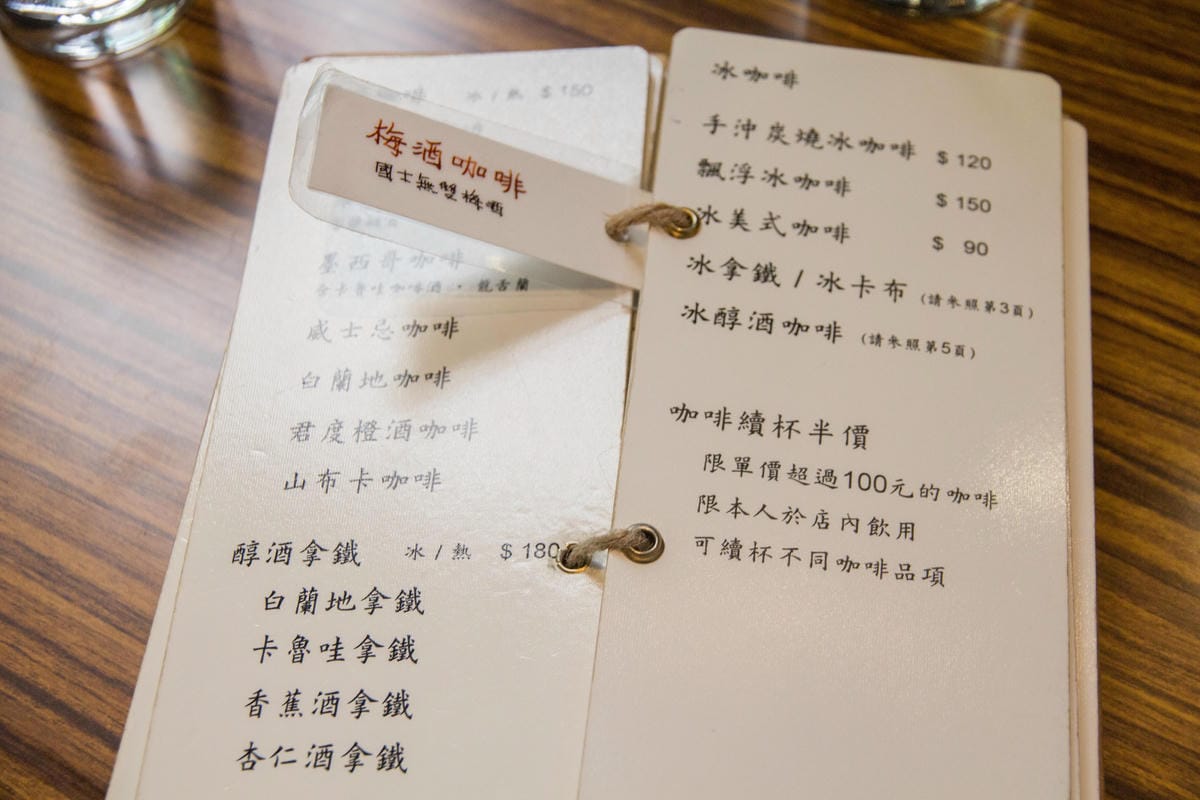 咖啡 冰 / 熱 $ 150
梅酒咖啡
國士無雙梅酒
墨西哥咖啡
含卡魯哇咖啡酒、龍舌蘭
威士忌咖啡
白蘭地咖啡
君度橙酒咖啡
山布卡咖啡
醇酒拿鐵 冰 / 熱 $ 180
白蘭地拿鐵
卡魯哇拿鐵
香蕉酒拿鐵
杏仁酒拿鐵
冰咖啡
手沖炭燒冰咖啡 $ 120
飄浮冰咖啡 $ 150
冰美式咖啡 $ 90
冰拿鐵 / 冰卡布 (請參照第3頁)
冰醇酒咖啡 (請參照第5頁)
咖啡續杯半價
限單價超過100元的咖啡
限本人於店內飲用
可續杯不同咖啡品項